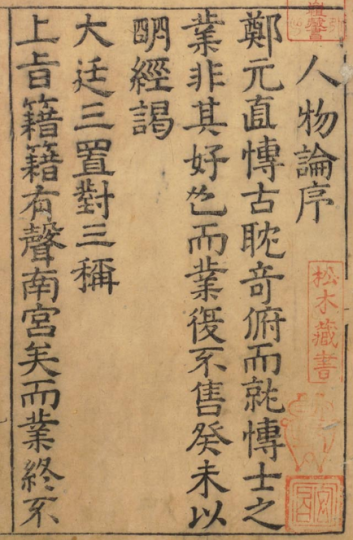 人物論序
鄭元直愽古耽奇俯而就愽士之
業非其好也而業復不售癸未以
明經謁
大廷三置對三稱
上旨籍籍有聲南宮矣而業終不
松木藏書